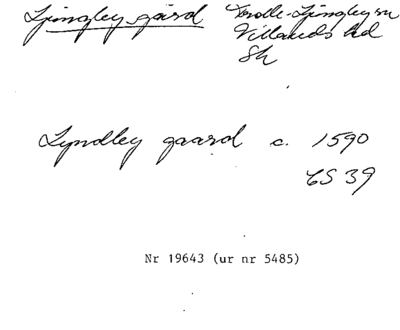 Ljungby gård Trolle-Ljungby sn
Villands hd
Sk
Lyndbey gaard c. 1590
CS 39
Nr 19643 (ur nr 5485)